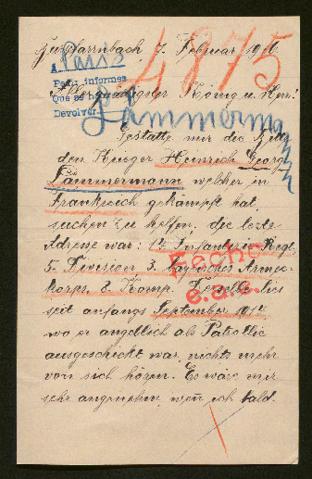 7. Februar 1916
4875
A París
Pedir informes
Devolver
Allergnädigster König u. Herr!
Lämmermann
Gestatte mir die Bitte
den Krieger Heinrich Georg
Lämmermann welcher in
Frankreich gekämpft hat,
suchen zu helfen, die letzte
Adresse war: Infanterie Regt
5. Division 3. Bayrisches Armee-
korps, 8. Komp. Derselbe lies
Hecho
seit anfangs September 1914
wo er angeblich als Patrollie
ausgeschickt war, nichts mehr
von sich hören. Es wäre mir
sehr angenehm, wenn ich bald.